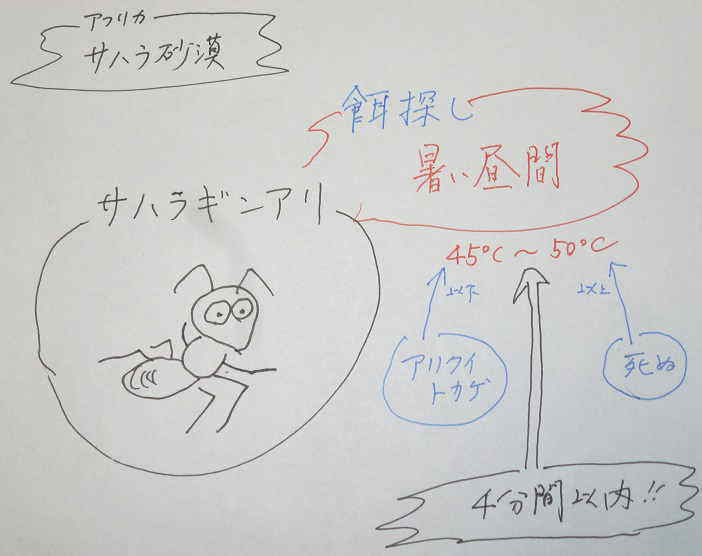 アフリカ
サハラ砂漠
餌探し
暑い昼間
サハラギンアリ
45℃～50℃
以下
以上
アリクイ
トカゲ
死ぬ
4分間以内!!